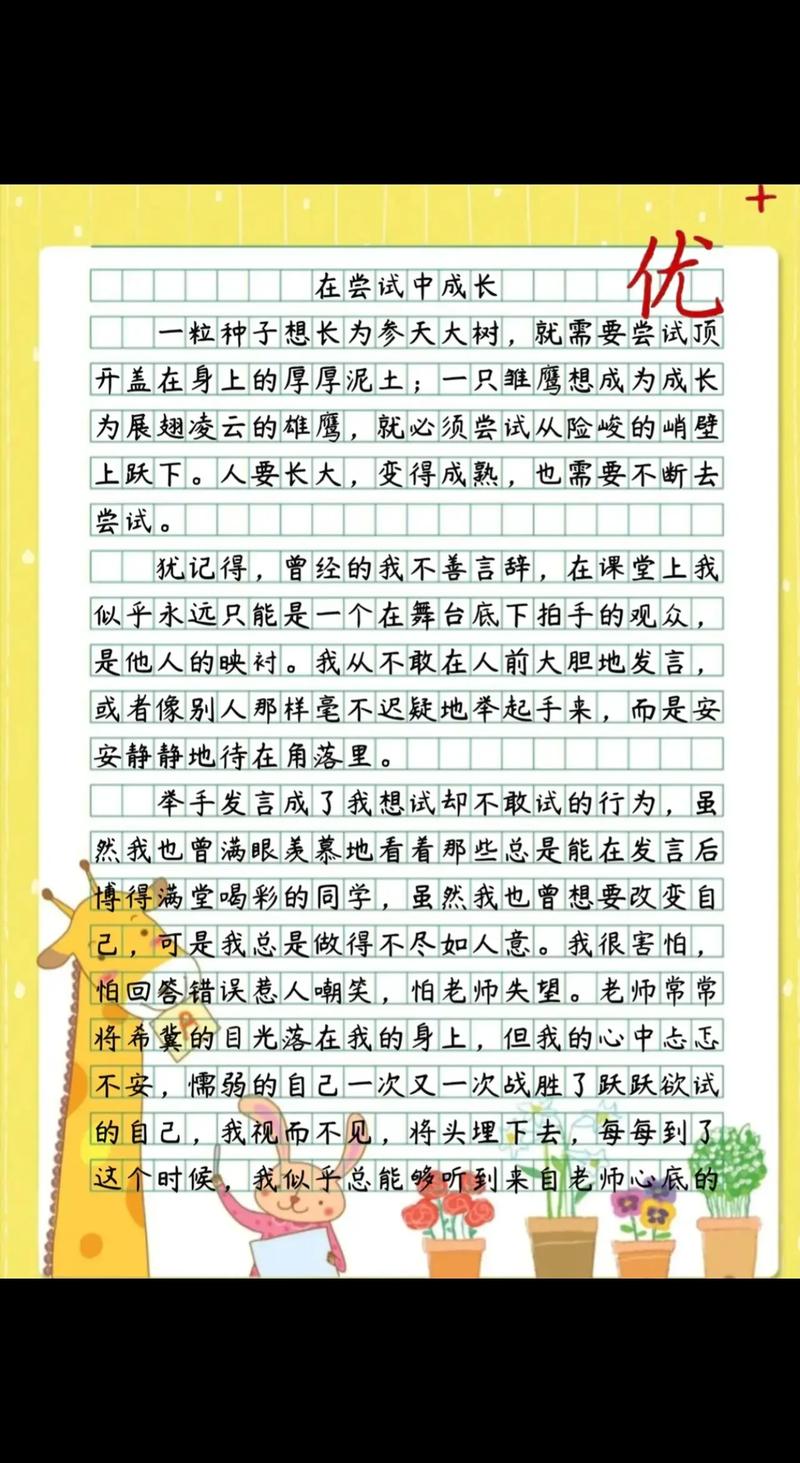 +
优
在尝试中成长
一粒种子想长为参天大树，就需要尝试顶
开盖在身上的厚厚泥土；一只雏鹰想成为成长
为展翅凌云的雄鹰，就必须尝试从险峻的峭壁
上跃下。人要长大，变得成熟，也需要不断去
尝试。
犹记得，曾经的我不善言辞，在课堂上我
似乎永远只能是一个在舞台底下拍手的观众，
是他人的映衬。我从不敢在人前大胆地发言，
或者像别人那样毫不迟疑地举起手来，而是安
安静静地待在角落里。
举手发言成了我想试却不敢试的行为，虽
然我也曾满眼羡慕地看着那些总是能在发言后
博得满堂喝彩的同学，虽然我也曾想要改变自
己，可是我总是做得不尽如人意。我很害怕，
怕回答错误惹人嘲笑，怕老师失望。老师常常
将希冀的目光落在我的身上，但我的心中忐忑
不安，懦弱的自己一次又一次战胜了跃跃欲试
的自己，我视而不见，将头埋下去，每每到了
这个时候，我似乎总能够听到来自老师心底的